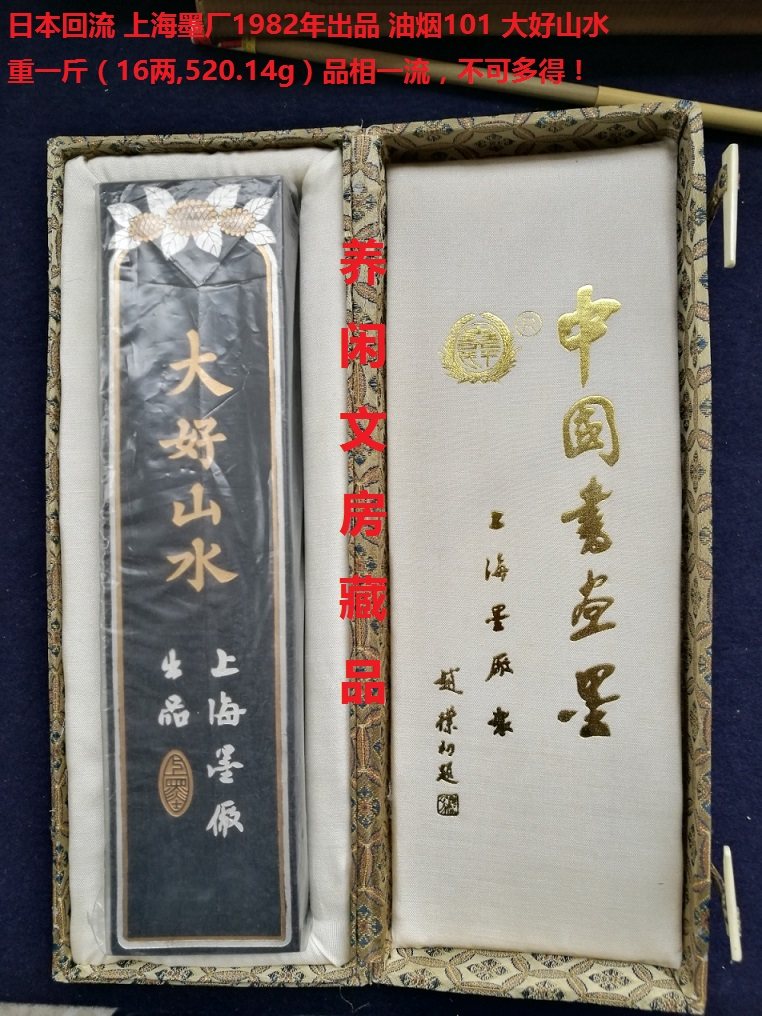 日本回流 上海墨厂1982年出品 油烟101 大好山水
重一斤（16两,520.14g）品相一流，不可多得！
养闲文房藏品
大好山水
上海墨厰
出品
中國書画墨
上海墨厰製
趙樸初題